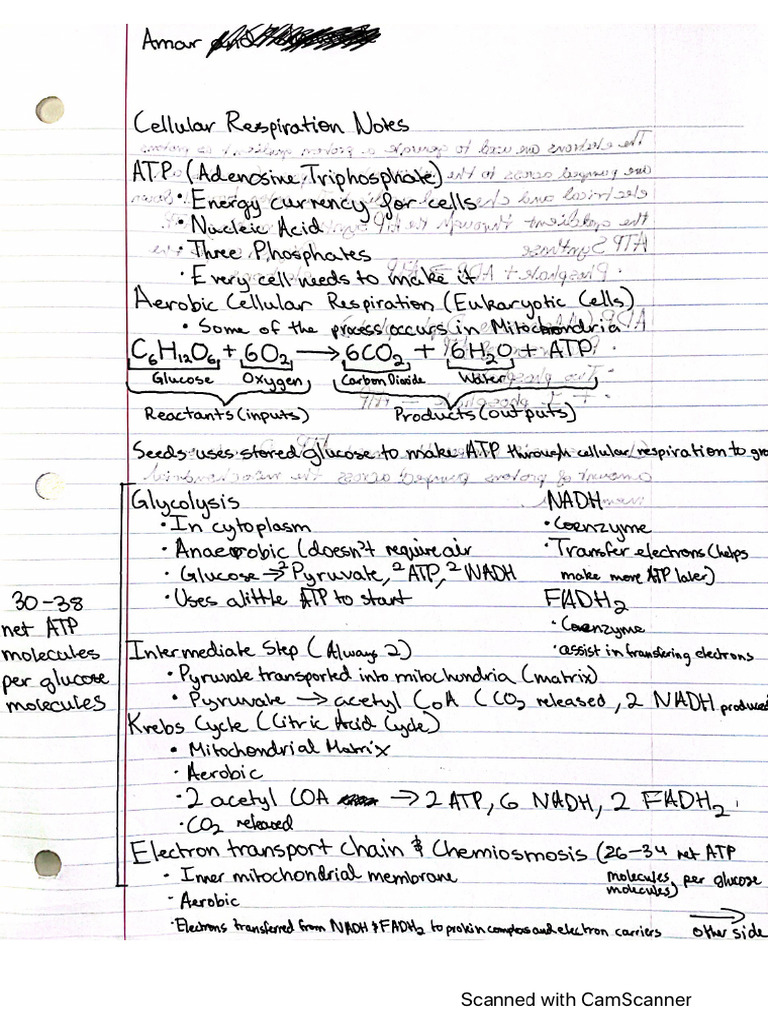 Amar
Cellular Respiration Notes
ATP (Adenosine Triphosphate)
• Energy currency for cells
• Nucleic Acid
• Three Phosphates
• Every cell needs to make it
Aerobic Cellular Respiration (Eukaryotic Cells)
• Some of the process occurs in Mitochondria
C6H12O6 + 6O2 → 6CO2 + 6H2O + ATP
Glucose Oxygen Carbon Dioxide Water
Reactants (inputs) Products (outputs)
Seeds uses stored glucose to make ATP through cellular respiration to
Glycolysis
• In cytoplasm
• Anaerobic (doesn't require air
• Glucose → 2 Pyruvate, 2 ATP, 2 NADH
• Uses a little ATP to start
NADH
• Coenzyme
• Transfer electrons (helps
make more ATP later)
FADH2
• Coenzyme
• assist in transfering electrons
30-38
net ATP
molecules
per glucose
molecules
Intermediate Step (Always 2)
• Pyruvate transported into mitochondria (matrix)
• Pyruvate → acetyl CoA (CO2 released, 2 NADH produced
Krebs Cycle (Citric Acid Cycle)
• Mitochondrial Matrix
• Aerobic
• 2 acetyl COA → 2 ATP, 6 NADH, 2 FADH2
• CO2 released
Electron transport Chain & Chemiosmosis (26-34 net ATP
molecules per glucose
molecules)
• Inner mitochondrial membrane
• Aerobic
• Electrons transferred from NADH & FADH2 to protein complexs and electron carriers
→
other side
Scanned with CamScanner